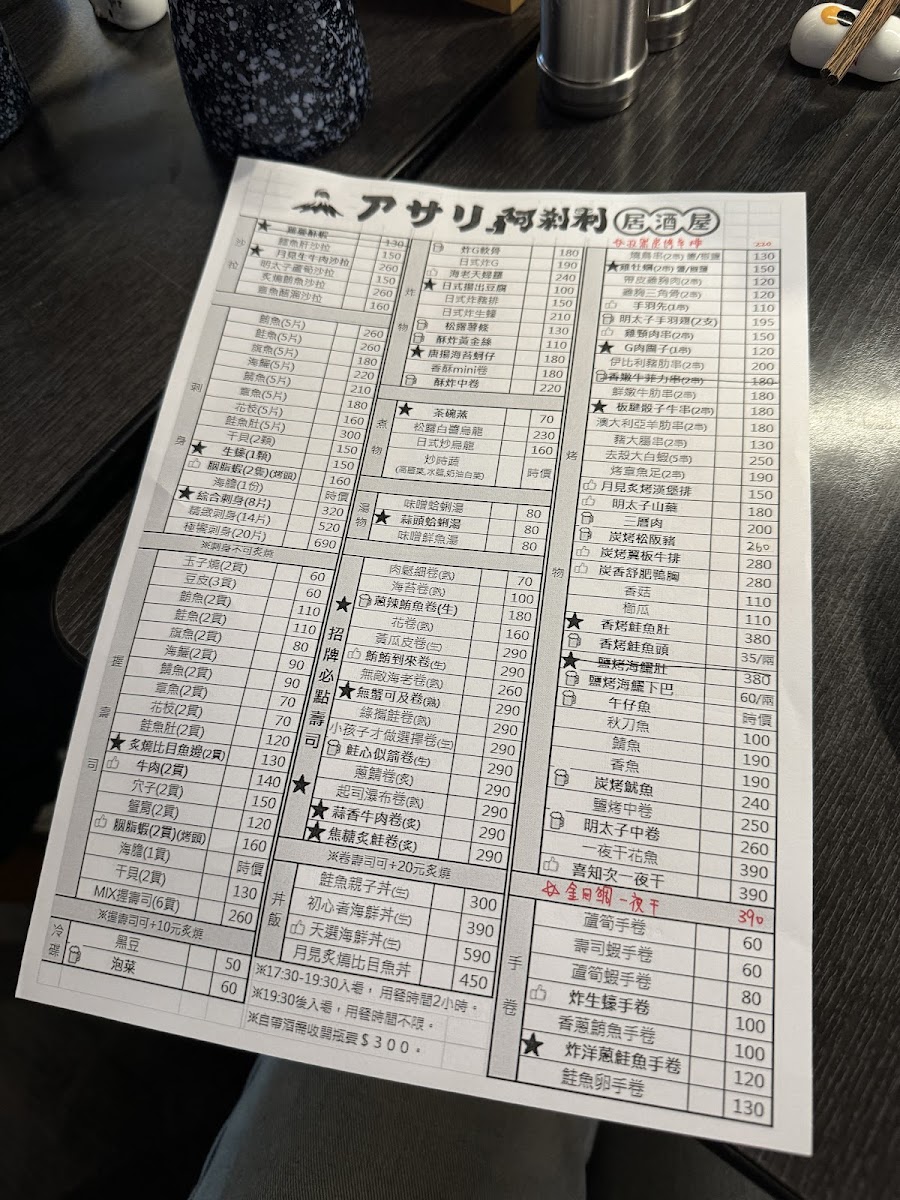 アサリ 阿剎利 居酒屋
沙拉
月見生牛肉沙拉 260
明太子蘆筍沙拉 150
炙燒鮪魚沙拉 260
章魚酪梨沙拉 160
刺身
鮪魚(5片) 260
鮭魚(5片) 260
旗魚(5片) 180
海鱺(5片) 220
鯖魚(5片) 210
章魚(5片) 180
花枝(5片) 160
鮭魚肚(5片) 300
干貝(2顆) 150
生蠔(1顆) 150
胭脂蝦(2隻)(烤頭) 160
海膽(1份) 時價
綜合刺身(8片) 320
精緻刺身(14片) 520
極饗刺身(20片) 690
※刺身不可炙燒
握壽司
玉子燒(2貫) 60
豆皮(3貫) 60
鮪魚(2貫) 110
鮭魚(2貫) 110
旗魚(2貫) 80
海鱺(2貫) 90
鯖魚(2貫) 90
章魚(2貫) 70
花枝(2貫) 70
鮭魚肚(2貫) 120
炙燒比目魚邊(2貫) 130
牛肉(2貫) 140
穴子(2貫) 150
蟹膏(2貫) 120
胭脂蝦(2貫)(烤頭) 160
海膽(1貫) 時價
干貝(2貫) 130
MIX握壽司(6貫) 260
※握壽司可+10元炙燒
冷碟
黑豆 50
泡菜 60
炸物
炸G軟骨 180
日式炸G 190
海老天婦羅 240
日式揚出豆腐 100
日式炸豬排 150
日式炸生蠔 210
松露薯條 130
酥炸黃金絲 110
唐揚海苔蚵仔 180
香酥mini卷 180
酥炸中卷 220
煮物
茶碗蒸 70
松露白醬烏龍 230
日式炒烏龍 160
炒時蔬 時價
(高麗菜,水蓮,奶油白菜)
湯物
味噌蛤蜊湯 80
蒜頭蛤蜊湯 80
味噌鮮魚湯 80
招牌必點壽司
肉鬆細卷(熟) 70
海苔卷(熟) 100
蔥辣鮪魚卷(生) 180
花卷(熟) 160
黃瓜皮卷(生) 290
鮪鮪到來卷(生) 290
無敵海老卷(熟) 260
無蟹可及卷(熟) 290
綠獨鮭卷(熟) 290
小孩子才做選擇卷(生) 290
鮭心似箭卷(生) 290
蔥鯖卷(炙) 290
起司瀑布卷(熟) 290
蒜香牛肉卷(炙) 290
焦糖炙鮭卷(炙) 290
※卷壽司可+20元炙燒
丼飯
鮭魚親子丼(生) 300
初心者海鮮丼(生) 390
天選海鮮丼(生) 590
月見炙燒比目魚丼 450
※17:30-19:30入場，用餐時間2小時。
※19:30後入場，用餐時間不限。
※自帶酒需收開瓶費$300。
210
烤物
燒鳥串(2串) 鹽/椒鹽 130
雞牡蠣(2串) 鹽/椒鹽 150
帶皮雞狗肉(2串) 120
雞狗三角骨(2串) 120
手羽先(1串) 110
明太子手羽翅(2支) 195
雞頸肉串(2串) 150
G肉團子(1串) 120
伊比利豬肋串(2串) 200
香嫩牛菲力串(2串) 180
鮮嫩牛肋串(2串) 180
板腱骰子牛串(2串) 180
澳大利亞羊肋串(2串) 180
豬大腸串(2串) 130
去殼大白蝦(5串) 250
烤章魚足(2串) 190
月見炙烤漢堡排 150
明太子山藥 180
三層肉 200
炭烤松阪豬 260
炭烤翼板牛排 280
炭香舒肥鴨胸 280
香菇 110
櫛瓜 110
香烤鮭魚肚 380
香烤鮭魚頭 35/兩
鹽烤海鱺肚 380
鹽烤海鱺下巴 60/兩
午仔魚 時價
秋刀魚 100
鯖魚 190
香魚 190
炭烤魷魚 240
鹽烤中卷 250
明太子中卷 260
一夜干花魚 390
喜知次一夜干 390
金目鯛一夜干 390
手卷
蘆筍手卷 60
壽司蝦手卷 60
蘆筍蝦手卷 80
炸生蠔手卷 100
香蔥鮪魚手卷 100
炸洋蔥鮭魚手卷 120
鮭魚卵手卷 130